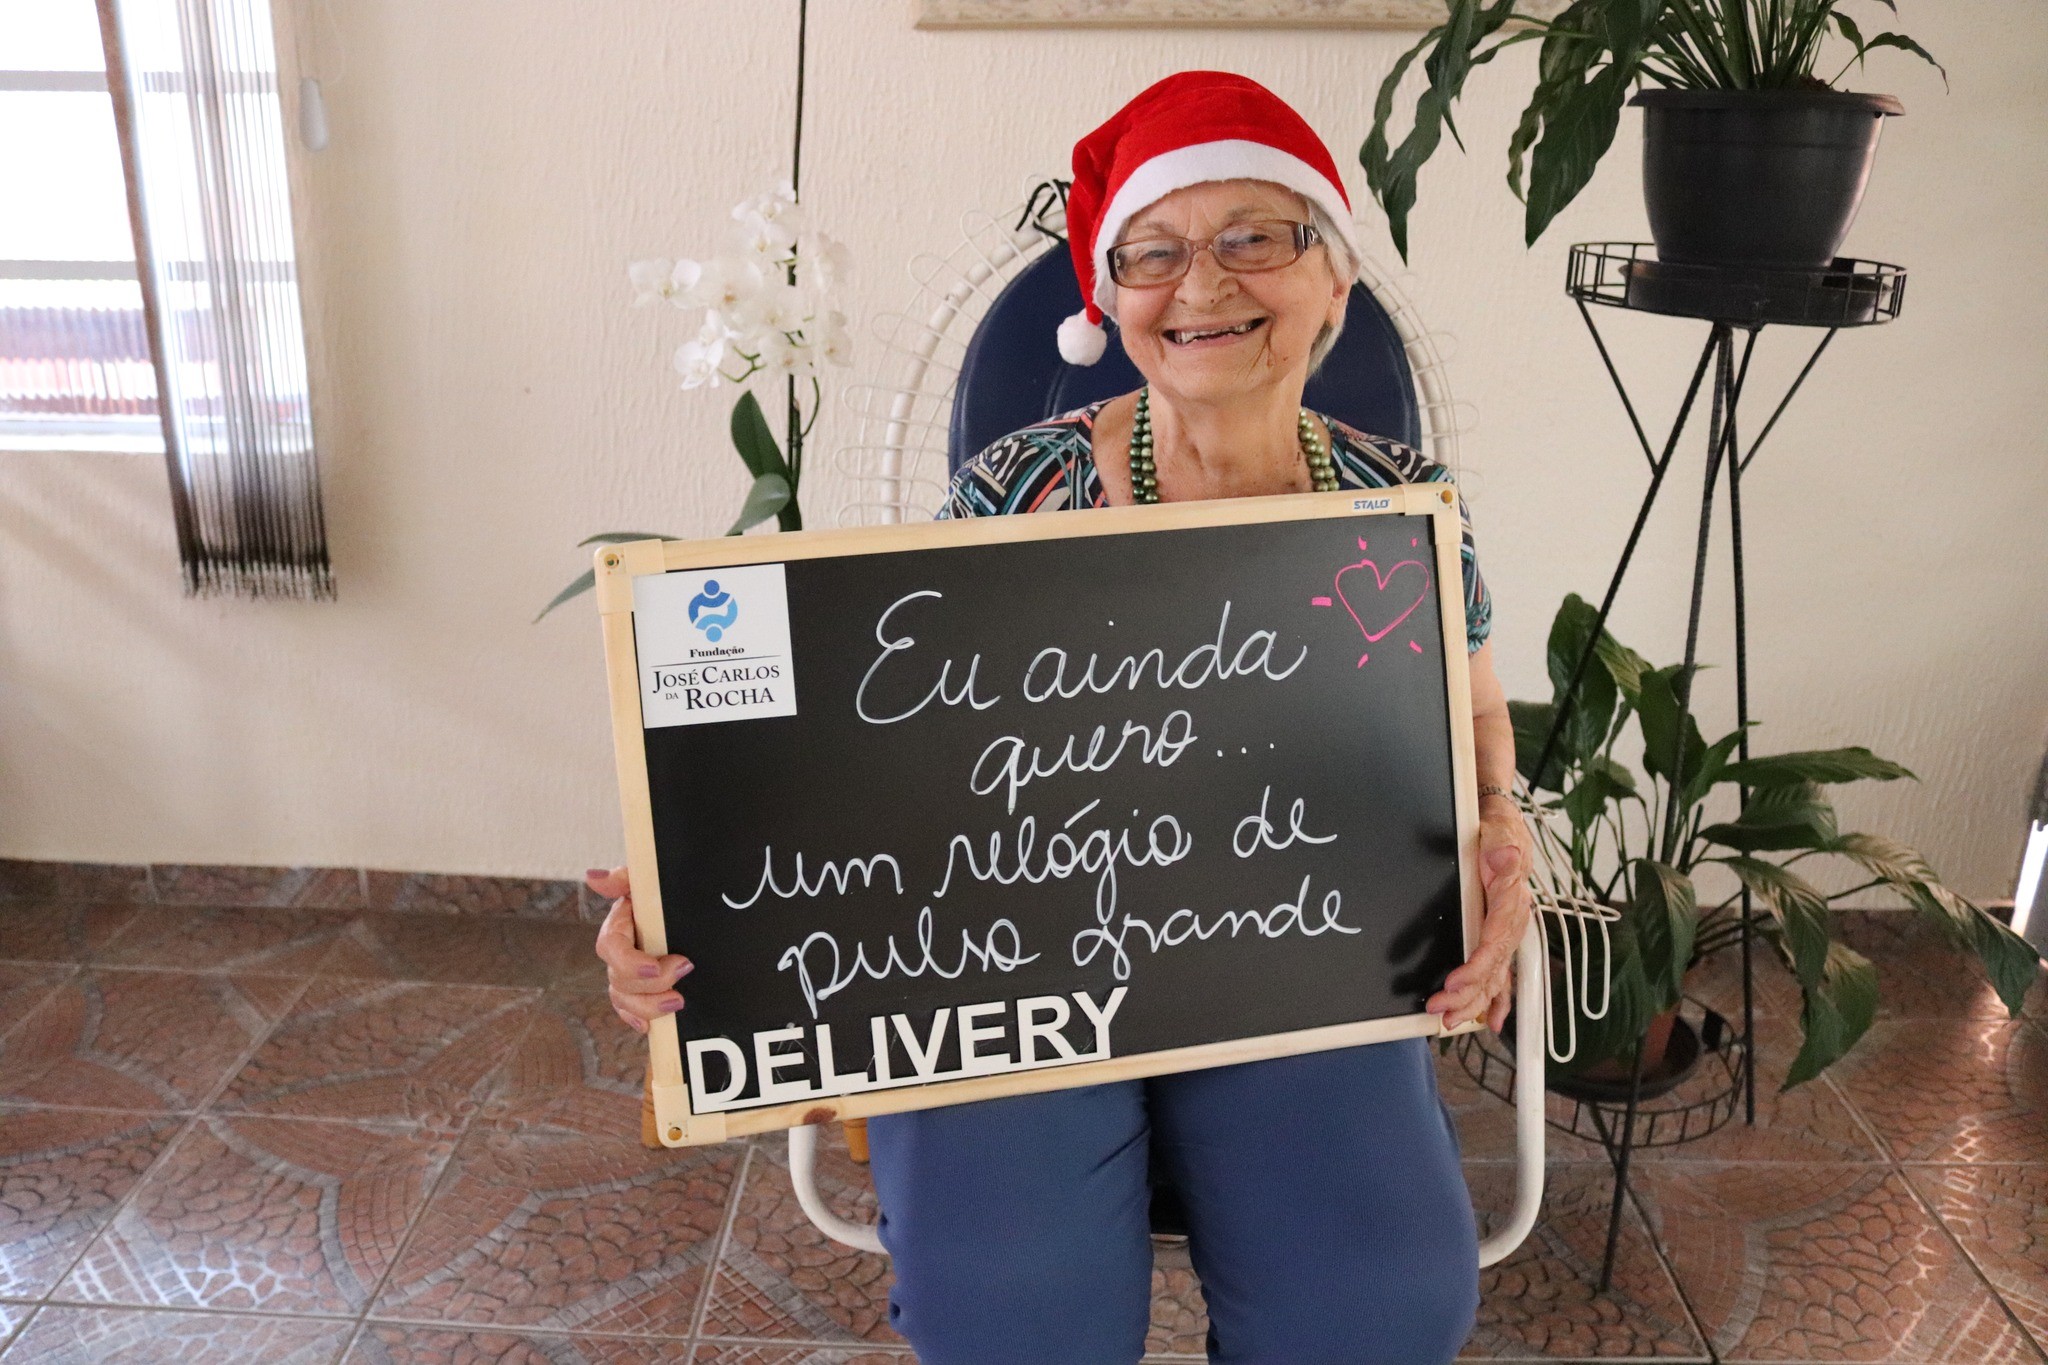 STALO
Fundação
JOSÉ CARLOS
DA ROCHA
Eu ainda
quero...
um relógio de
pulso grande
DELIVERY